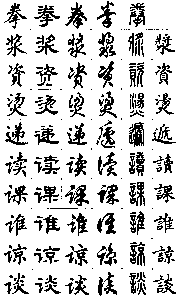 拳 拳 拳 拳 拳
浆 浆 浆 浆 漿 漿
资 资 资 资 資 資
烫 烫 烫 烫 燙 燙
递 递 递 递 遞 遞
读 读 读 读 讀 讀
课 课 课 课 課 課
谁 谁 谁 谁 誰 誰
谅 谅 谅 谅 諒 諒
谈 谈 谈 谈 談 談